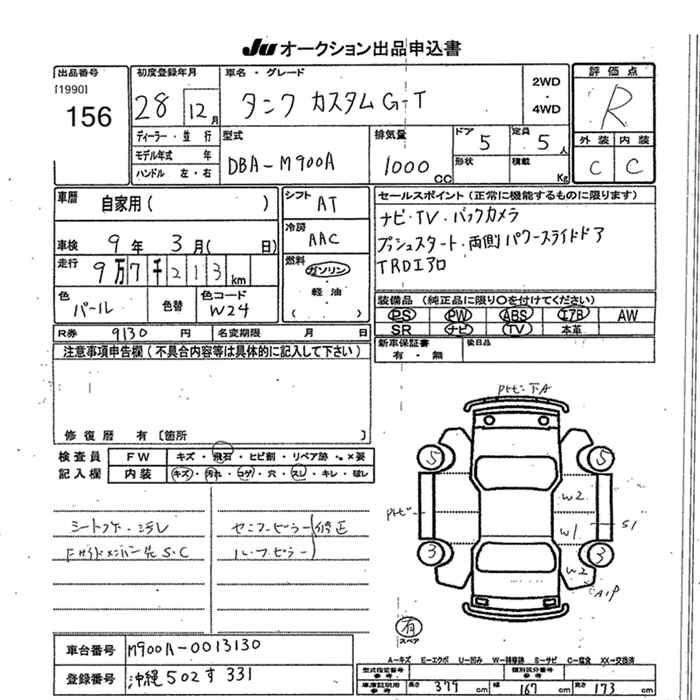 JU オークション出品申込書
出品番号
[1990]
156
初度登録年月
28 12月
車名・グレード
タンク カスタムG-T
2WD
・
4WD
評価点
R
外装 内装
C C
ディーラー・並行
モデル年式 年
ハンドル 左・右
型式
DBA-M900A
排気量
1000 CC
ドア 5
定員 5人
形状
積載 Kg
車歴 自家用( )
車検 9年 3月( 日)
走行 9万7千213km
色 パール
色替
色コード W24
シフト AT
冷房 AAC
燃料
ガソリン
軽油
( )
セールスポイント (正常に機能するものに限ります)
ナビ・TV・バックカメラ
プッシュスタート・両側パワースライドドア
TRDエアロ
装備品 (純正品に限り○を付けてください)
PS PW ABS エアB AW
SR ナビ TV 本革
R券 9130円
名変期限 月 日
新車保証書 有・無
後日品
注意事項申告欄(不具合内容等は具体的に記入して下さい)
修復歴 有 [箇所 ]
検査員
記入欄
FW キズ・飛石・ヒビ割・リペア跡・×要
内装 キズ・汚れ・コゲ・穴・スレ・キレ・破レ
シートコゲ・汚レ
センターピラー
修正
S・C
ルーフピラー
5
5
W2
W1
S1
3
3
W2
有
スペア
A-キズ E-エクボ U-凹み W-補修跡 S-サビ C-腐食 XX-交換済
車台番号 M900A-0013130
登録番号 沖縄502す331
型式指定番号 参考
類別区分番号 参考
車庫証明用 参考
長さ 377cm
幅 167cm
高さ 173cm